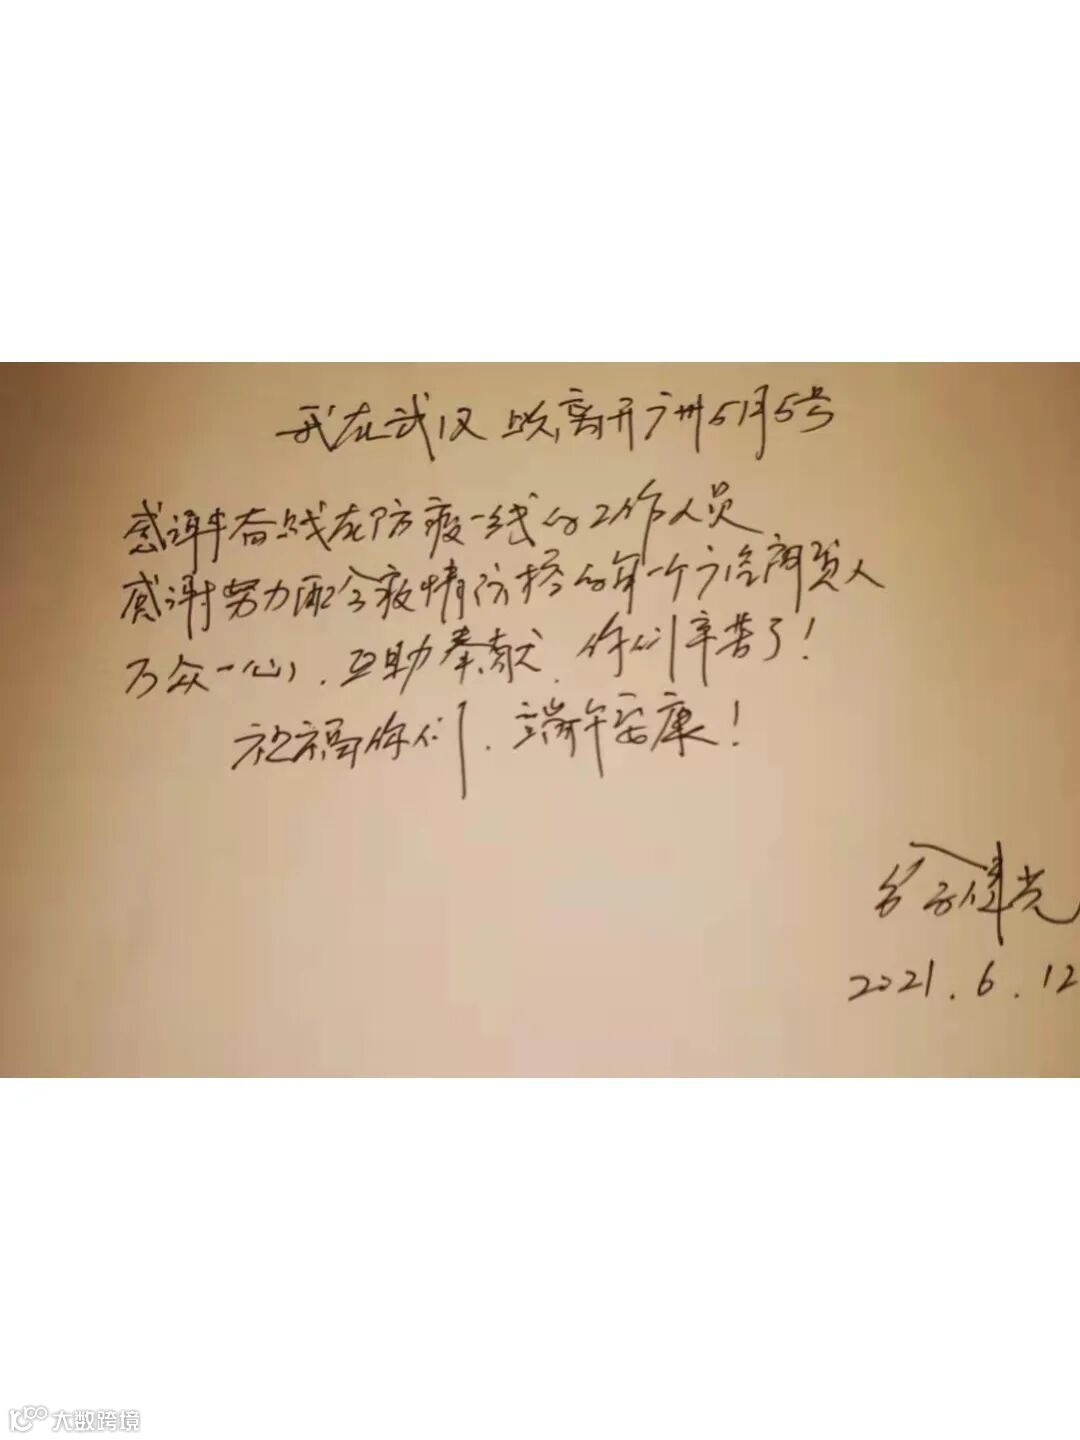 我在武汉 离开广州5月5号
感谢奋战在防疫一线的工作人员
感谢努力配合疫情防控的每一个广治商贸人
万众一心，互助奉献，你们辛苦了！
祝福你们，端午安康！
2021.6.12
大数跨境